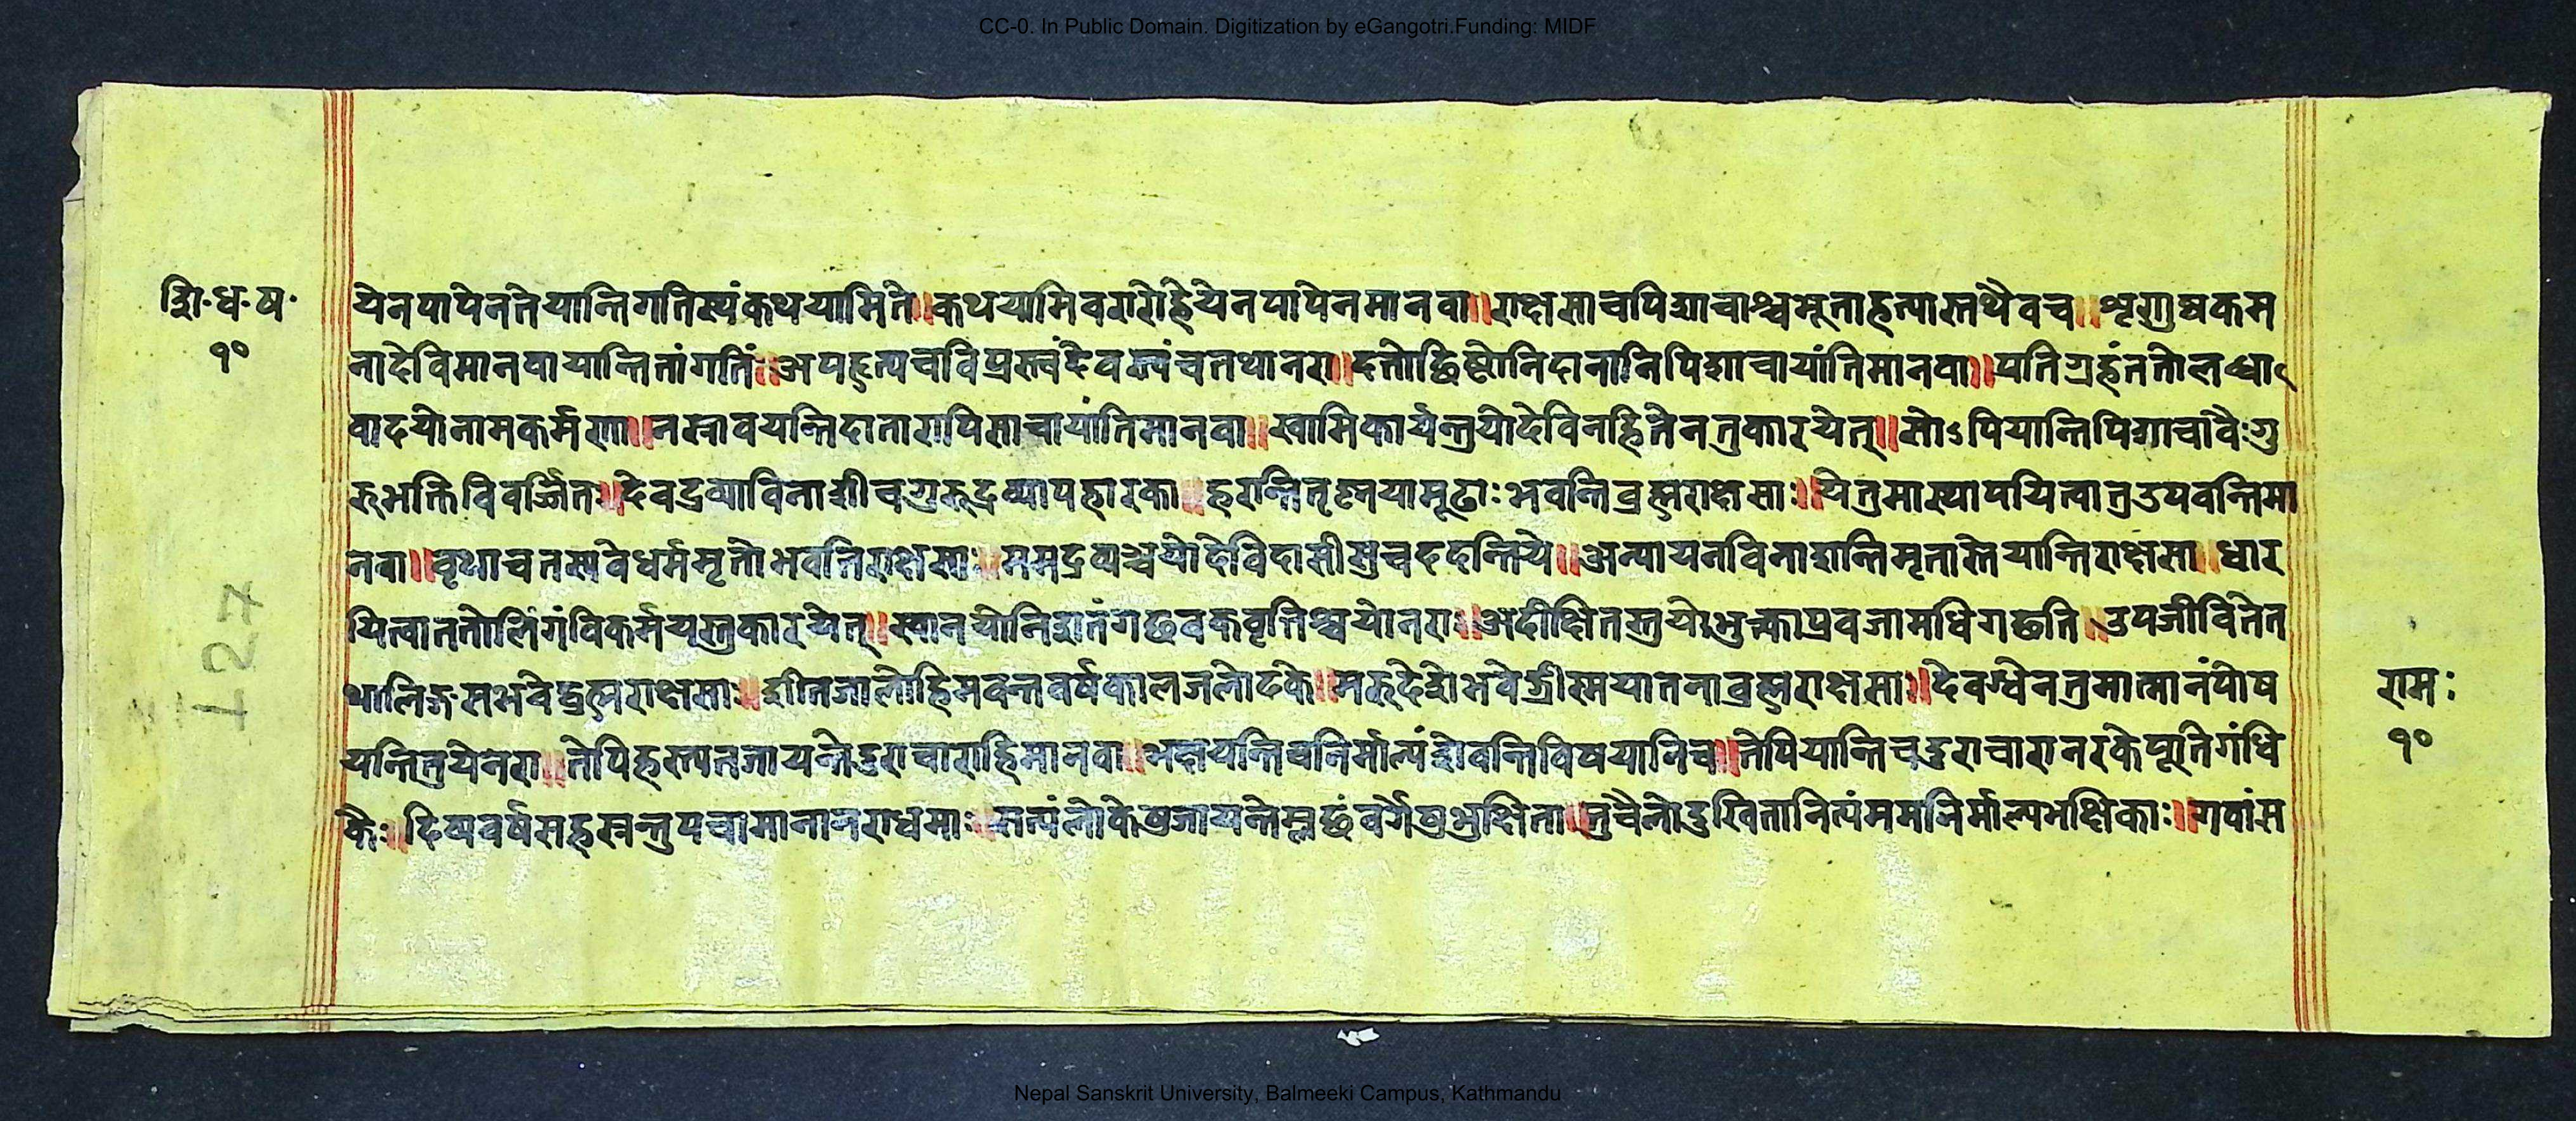 CC-0. In Public Domain. Digitization by eGangotri.Funding: MIDF
शि·ध·ष·
१०
येनपापेनतेयान्तिगतिस्यंकथयामिते॥कथयामिवरारोहेयेनपापेनमानवा॥राक्षसाचपिशाचाश्चभूताहत्यास्तथैवच॥शृणुष्वकम
नादेविमानवायान्तितांगतिं॥अपहृत्यचविप्रस्वंदेवस्वंचतथानरा॥दत्तोद्दिष्टोनिदानानिपिशाचायांतिमानवा॥प्रतिग्रहंततोलब्धा
वादयोनामकर्मणा॥नस्रावयन्तिदातारापिसाचायांतिमानवा॥स्वामिकार्यन्तुयोदेविनहितेनतुकारयेत्॥सोऽपियान्तिपिशाचावैःगु
रुभक्तिविवर्जित॥देवद्रव्याविनाशीचगुरुद्रव्यापहारका॥हरान्तितृष्णयामूढाःभवन्तिब्रह्मराक्षसाः॥येतुमास्थापयित्वातुउपवन्तिमा
नवा॥वृथाचतस्यवैधर्ममृतोभवतिराक्षसाः॥ममद्रव्यञ्चयोदेविदासीसुचददन्तिये॥अन्यायनविनाशन्तिमृतास्तेयान्तिराक्षसा॥धार
यित्वाततोलिंगंविकर्मयस्तुकारयेत्॥स्वानयोनिशतंगछवकवृत्तिश्चयोनरा॥अदीक्षितस्तुयोभुक्त्वाप्रवजामधिगछति॥उपजीवितेत
थालिङ्गसभवेद्ब्रह्मराक्षसा॥शीतजालोहिमवन्तवर्षकालजलोदके॥मरुदेशेभवेग्रीस्मयातनाब्रह्मराक्षसा॥देवश्वेनतुमात्मानंपोष
यन्तितुयेनरा॥तेपिहस्त्यतजायन्तेदुराचाराहिमानवा॥भक्षयन्तिचनिर्माल्यंशेवन्तिविषयानिच॥तेपियान्तिचदुराचारानरकेपूतिगंधि
कैः॥दिव्यवर्षसहस्रन्तुपचामानानराधमाः॥सत्यंलोकेषुजायन्तेम्लछंवर्गेषुभुक्षिता॥तुचैलोदुखितानित्यंममनिर्माल्यभक्षिकाः॥गवांस
रामः
१०
I27
Nepal Sanskrit University, Balmeeki Campus, Kathmandu